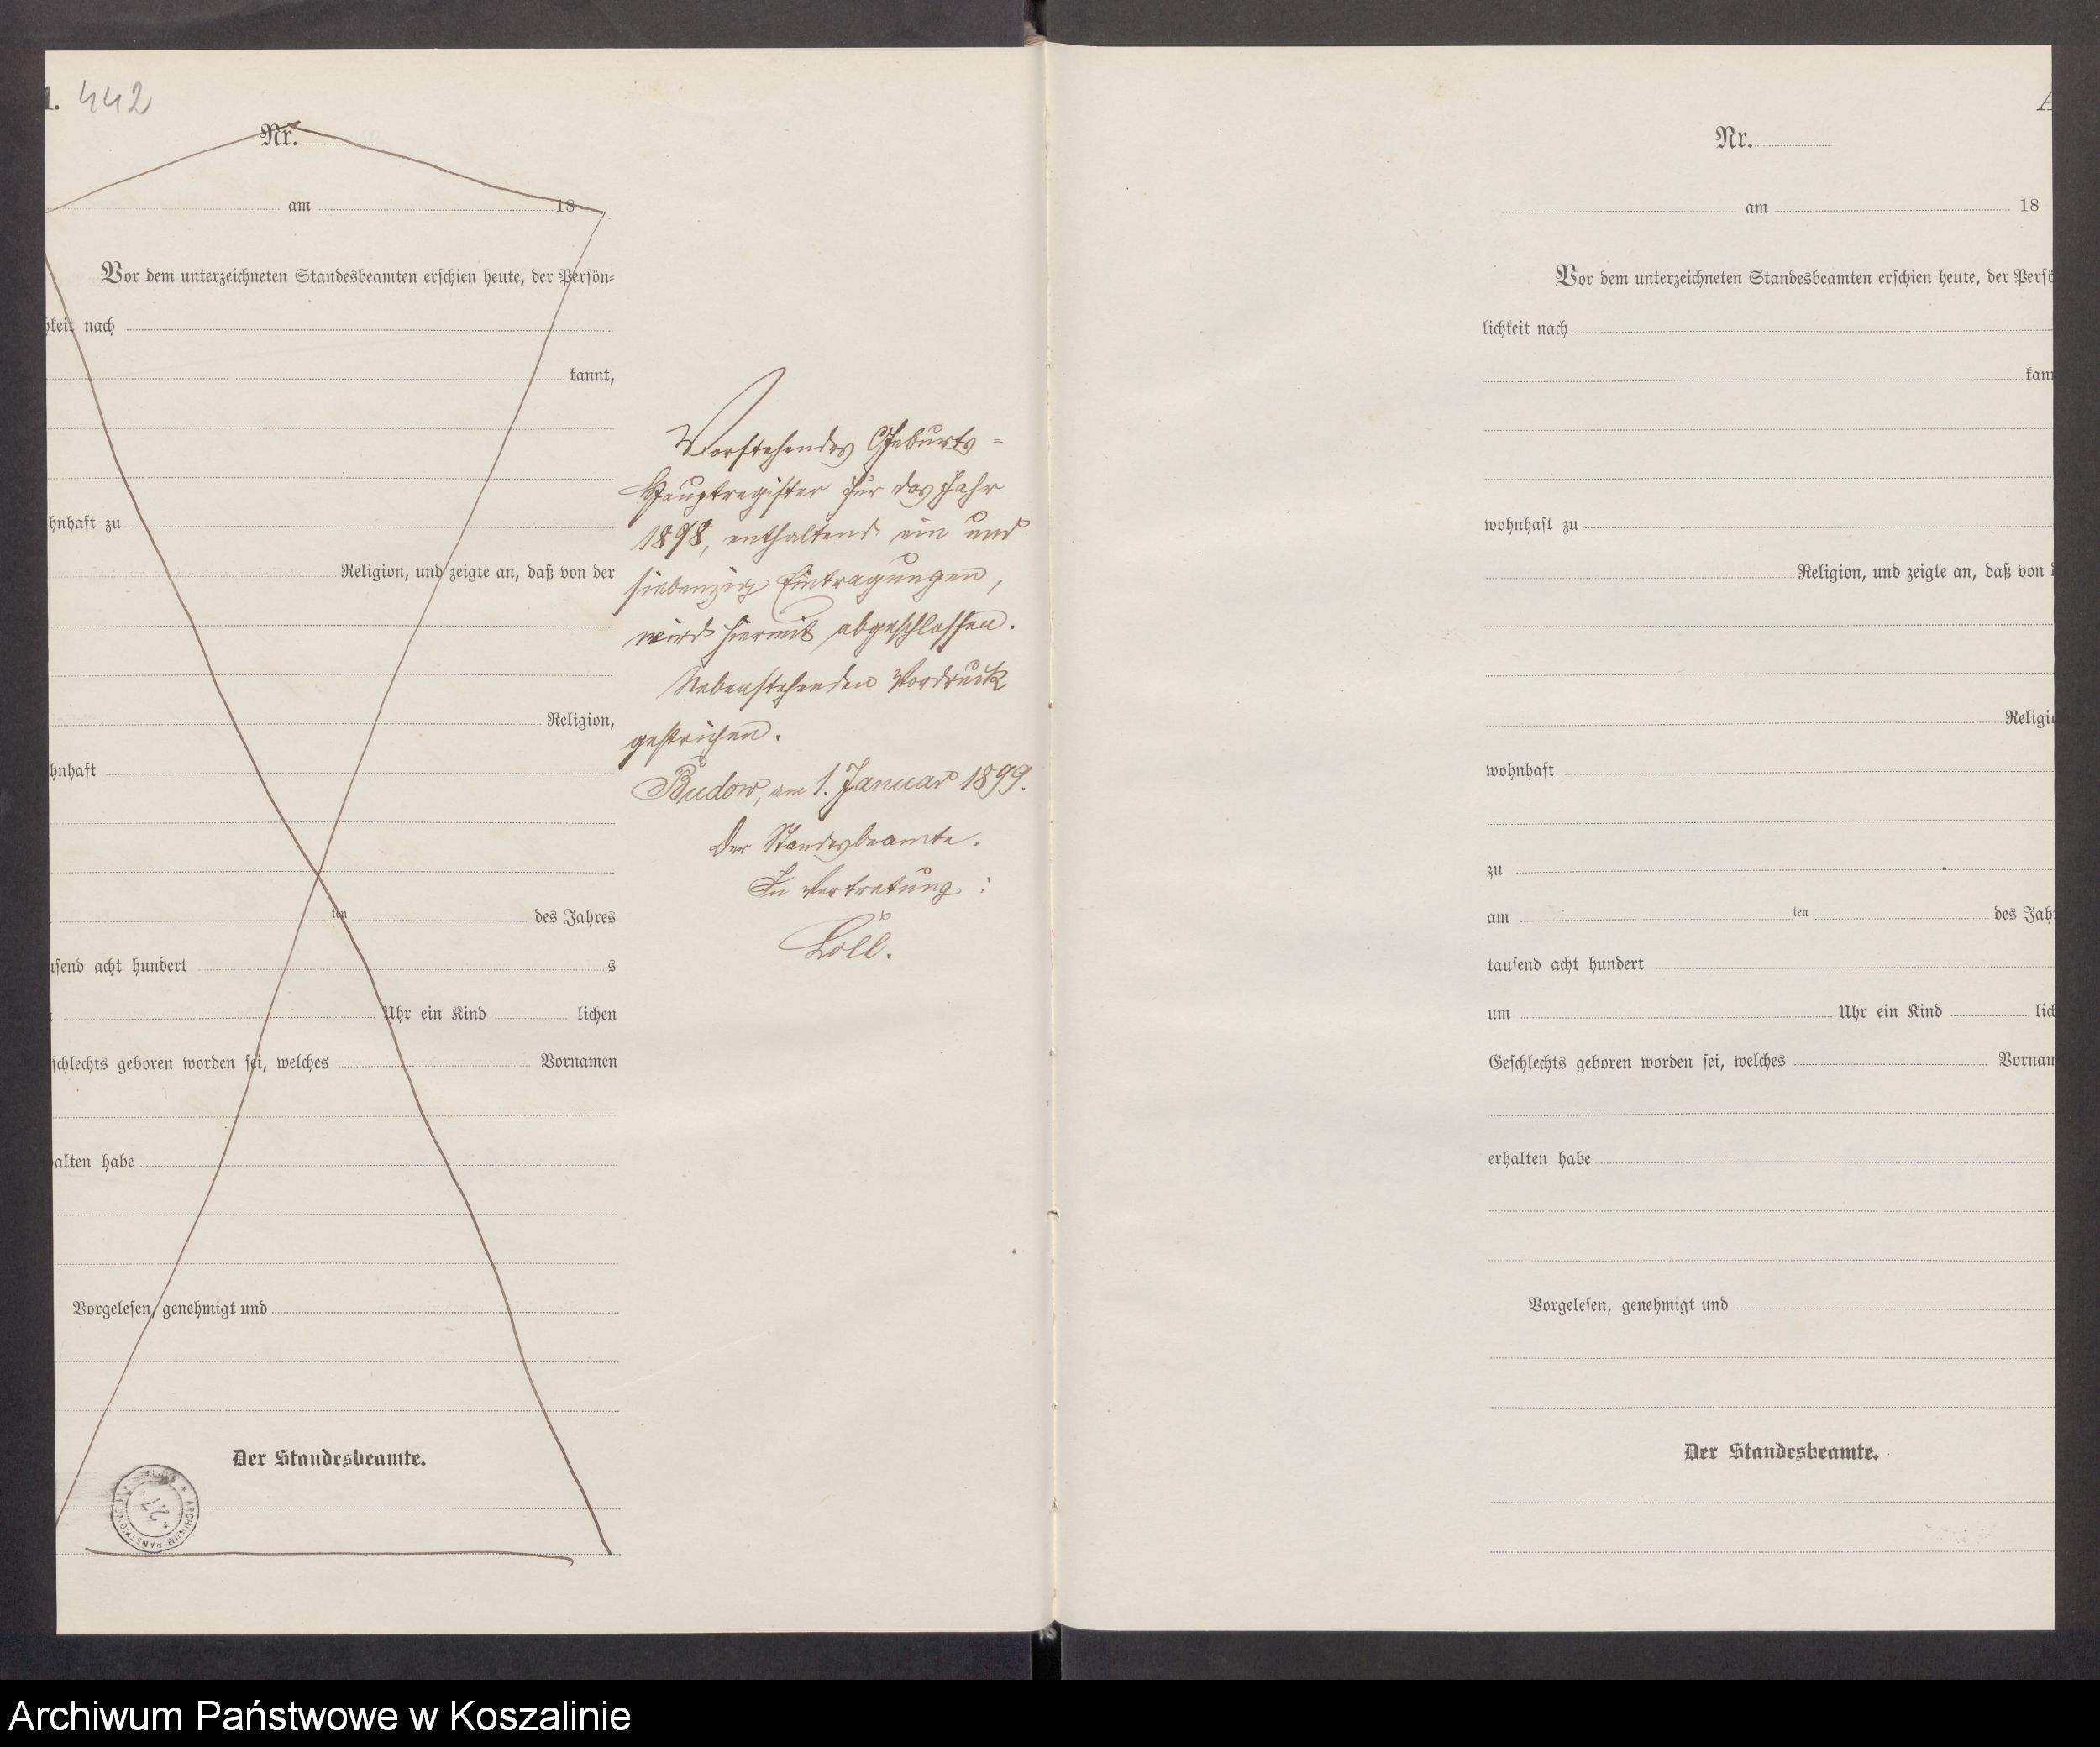 442
Nr.
am 18
Vor dem unterzeichneten Standesbeamten erschien heute, der Persön-
keit nach
kannt,
hnhaft zu
Religion, und zeigte an, daß von der
Religion,
hnhaft
ten des Jahres
usend acht hundert s
Uhr ein Kind lichen
schlechts geboren worden sei, welches Vornamen
alten habe
Vorgelesen, genehmigt und
Der Standesbeamte.
ARCHIWUM PAŃSTWOWE
Vorstehendes Geburts-
Hauptregister für das Jahr
1898, enthaltend ein und
siebenzig Eintragungen,
wird hiermit abgeschlossen.
Nebenstehenden Vordruck
gestrichen.
Budow, am 1. Januar 1899.
Der Standesbeamte.
In Vertretung:
Löll.
Nr.
am 18
Vor dem unterzeichneten Standesbeamten erschien heute, der Persö
lichkeit nach
kann
wohnhaft zu
Religion, und zeigte an, daß von
Religi
wohnhaft
zu
am ten des Jah
tausend acht hundert
um Uhr ein Kind lich
Geschlechts geboren worden sei, welches Vornam
erhalten habe
Vorgelesen, genehmigt und
Der Standesbeamte.
Archiwum Państwowe w Koszalinie